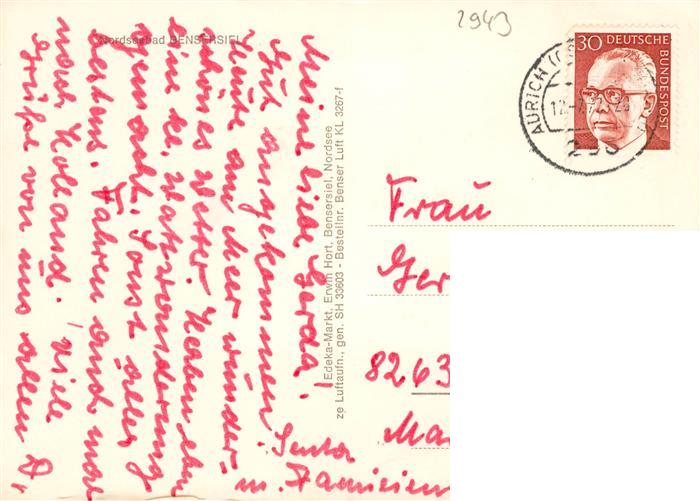 Nordseebad BENSERSIEL
Meine liebe Gerda!
Gut angekommen!
Heute am Meer wunder-
schönes Wetter. Haben eben
eine kl. Wattwanderung
gemacht. Sonst alles
bestens. Fahren auch mal
nach Holland. Viele
Grüße von uns allen
Senta
m.
Edeka-Markt, Erwin Hort, Bensersiel, Nordsee
ze Luftaufn., gen. SH 33603 - Bestellnr. Benser Luft KL 3267-f
2943
30 DEUTSCHE
BUNDESPOST
AURICH
Frau
Ger
8263
Ma